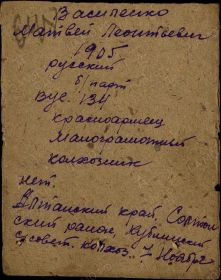 Василенко
Матвей Леонтьевич
1905
русский
б/парт
Вус. 134
красноармеец
малограмотный
колхозник
нет.
Алтайский край, Солтон
ский район,
совет. колхоз "7 Ноября